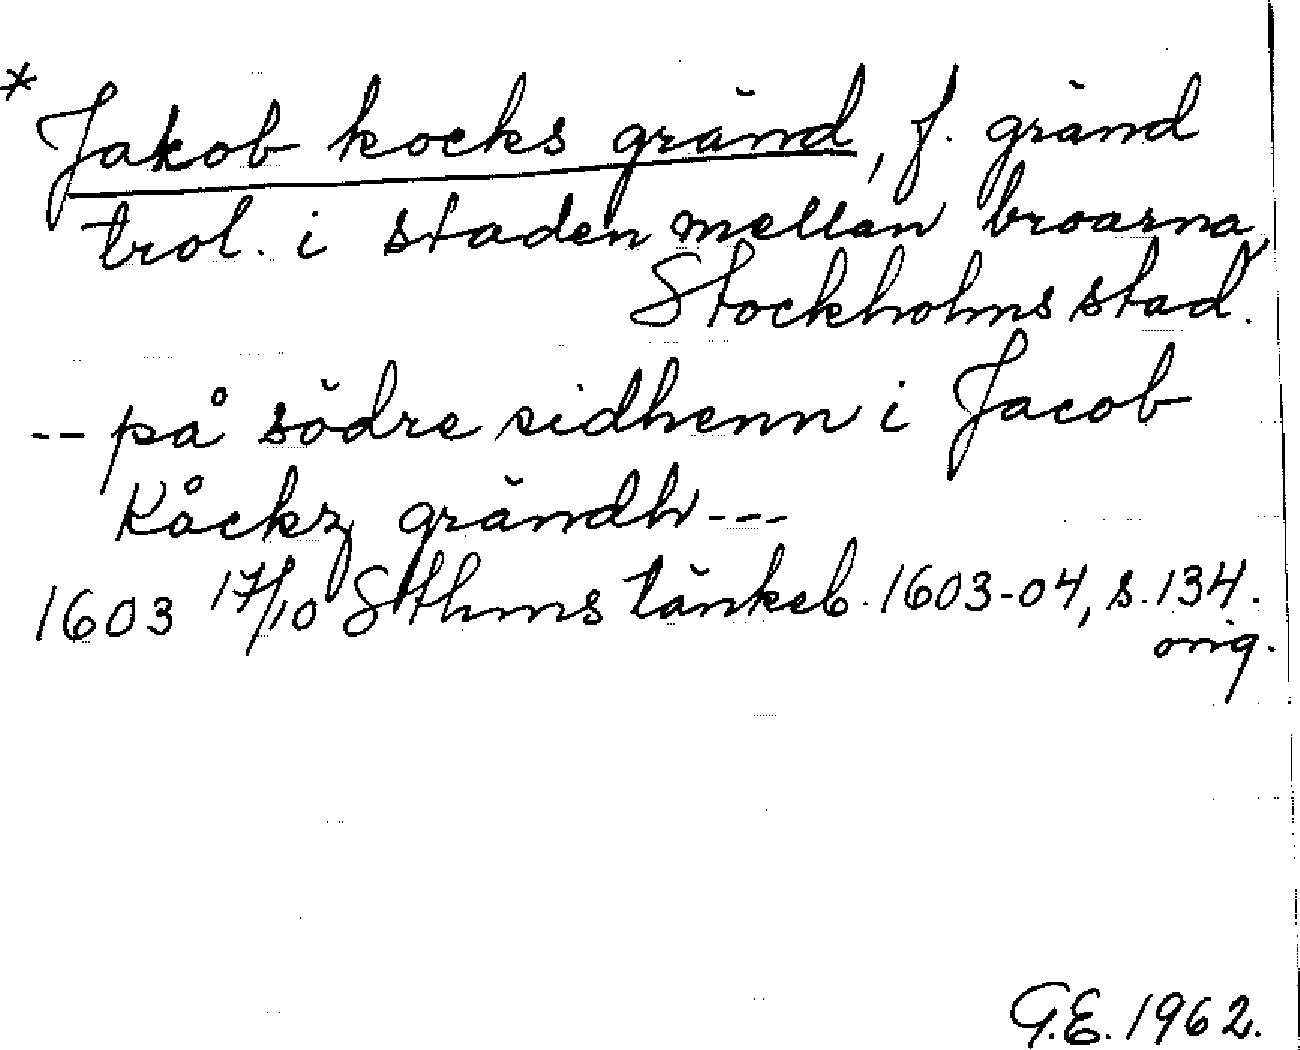 * Jakob kocks gränd, f. gränd
trol. i staden mellan broarna,
Stockholms stad.
-- på södre sidhenn i Jacob
Kåckz grändh ---
1603 17/10 Sthms tänkeb. 1603-04, s. 134.
orig.
G.E. 1962.